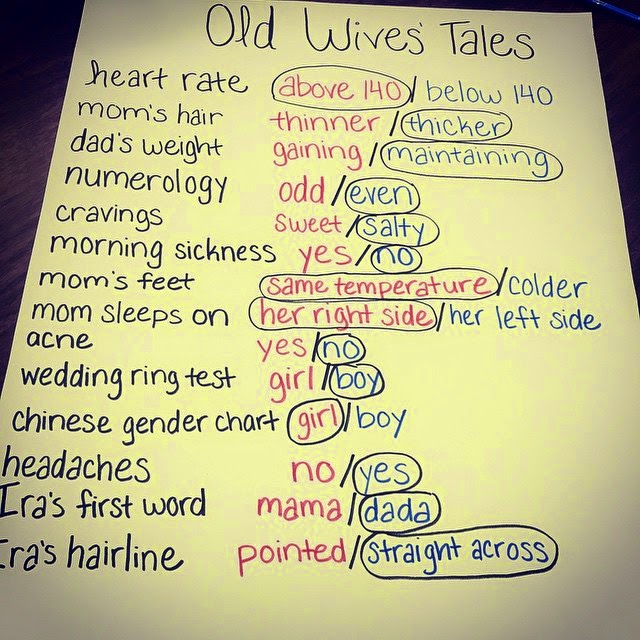 Old Wives' Tales
heart rate above 140 / below 140
mom's hair thinner / thicker
dad's weight gaining / maintaining
numerology odd / even
cravings sweet / salty
morning sickness yes / no
mom's feet same temperature / colder
mom sleeps on her right side / her left side
acne yes / no
wedding ring test girl / boy
chinese gender chart girl / boy
headaches no / yes
Ira's first word mama / dada
Ira's hairline pointed / straight across